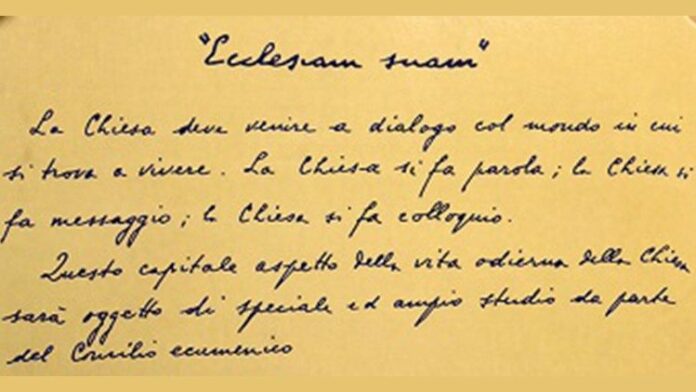 "Ecclesiam suam"
La Chiesa deve venire a dialogo col mondo in cui
si trova a vivere. La Chiesa si fa parola; la Chiesa si
fa messaggio; la Chiesa si fa colloquio.
Questo capitale aspetto della vita odierna della Chiesa
sarà oggetto di speciale ed ampio studio da parte
del Concilio ecumenico